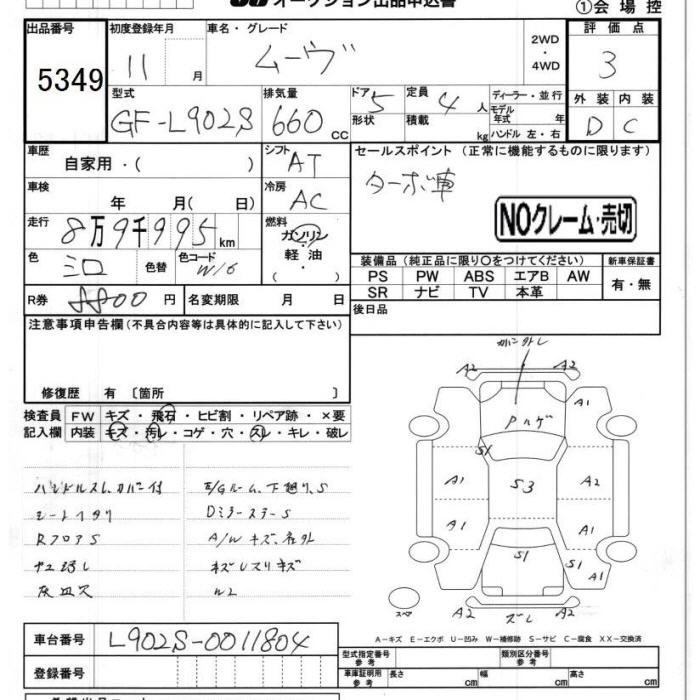 オークション出品申込書
①会場控
出品番号
5349
初度登録年月
11 月
車名・グレード
ムーヴ
2WD
・
4WD
評価点
3
型式
GF-L902S
排気量
660 CC
ドア 5
形状
定員 4 人
積載 kg
ディーラー・並行
モデル年式 年
ハンドル 左・右
外装 内装
D C
車歴
自家用・( )
シフト
AT
セールスポイント（正常に機能するものに限ります）
ターボ車
NOクレーム・売切
車検
年 月( 日)
冷房
AC
走行
8万9千995 km
燃料
ガソリン
・
軽油
( )
色
色替
色コード
W16
装備品（純正品に限り○をつけてください）
新車保証書
PS PW ABS エアB AW
SR ナビ TV 本革
有・無
R券
8800 円
名変期限 月 日
後日品
注意事項申告欄（不具合内容等は具体的に記入して下さい）
修復歴 有〔箇所 〕
検査員
記入欄
FW キズ・飛石・ヒビ割・リペア跡・×要
内装 キズ・汚レ・コゲ・穴・スレ・キレ・破レ
ハンドルスレ、カバー付
シートヘタリ
RフロアS
灰皿欠
E/Gルーム、下廻りS
DミラーステーS
A/Wキズ、名外
カバー外レ
A2 A2
A1
Pハゲ
S1
A1 S3 A2
A1 A1
S1 S1
A1
スペア
A2 ズレ A2
A－キズ E－エクボ U－凹み W－補修跡 S－サビ C－腐食 XX－交換済
車台番号
L902S-0011804
登録番号
型式指定番号
参考
類別区分番号
参考
車庫証明用
参考
長さ cm 幅 cm 高さ cm